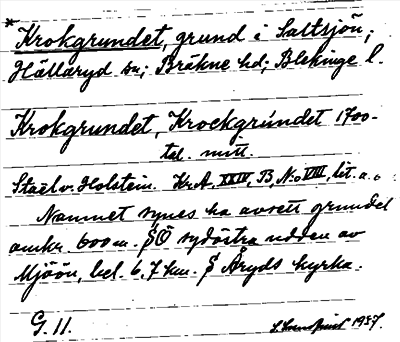 * Krokgrundet, grund i Saltsjön;
Hällaryd sn; Bräkne hd; Blekinge l.
Krokgrundet, Krockgrundet 1700-
tal. mitt.
Staël v. Holstein. Kr. A. XXIV, B, No VIII, lit. a.
Namnet synes ha avsett grundet
omkr. 600 m. SÖ sydöstra udden av
Mjöön, bel. 6,7 km. S Åryds kyrka.
G. 11.
1937.